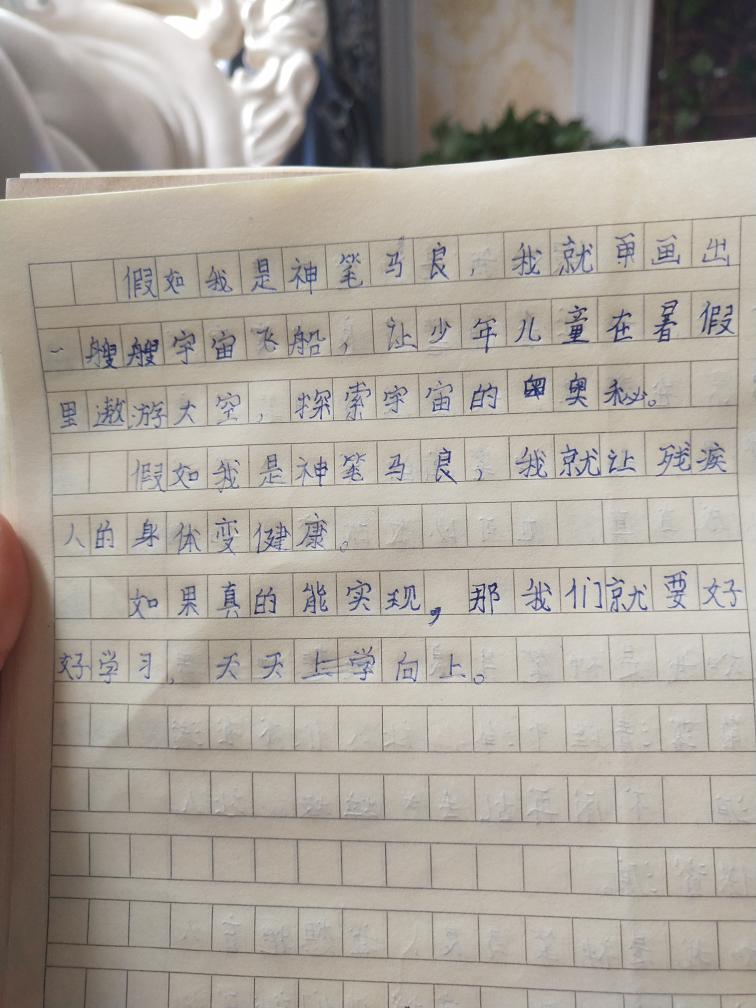 假如我是神笔马良,我就再画出
一艘艘宇宙飞船,让少年儿童在暑假
里遨游太空,探索宇宙的奥秘。
假如我是神笔马良,我就让残疾
人的身体变健康。
如果真的能实现,那我们就要好
好学习,天天向上。